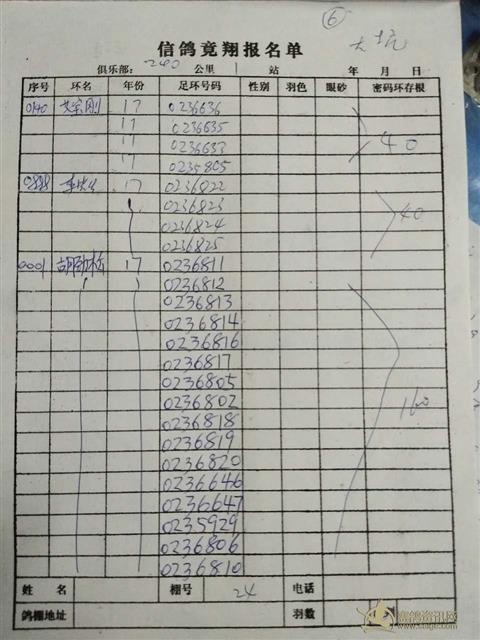 ⑥
大坑
信鸽竟翔报名单
俱乐部： 240 公里 站 年 月 日
序号 环名 年份 足环号码 性别 羽色 眼砂 密码环存根
0140 艾宝刚 17 0236636
17 0236635
17 0236633 40
17 0235805
0888 17 0236822
0236823
0236824 40
0236825
0001 胡劲松 17 0236811
0236812
0236813
0236814
0236816
0236817
0236805
0236802 160
0236818
0236819
0236820
0236646
0236647
0235929
0236806
0236810
姓 名 棚号 24 电话
鸽棚地址 羽数